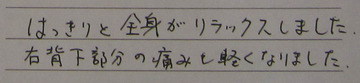 はっきりと全身がリラックスしました.
右背下部分の痛みも軽くなりました.